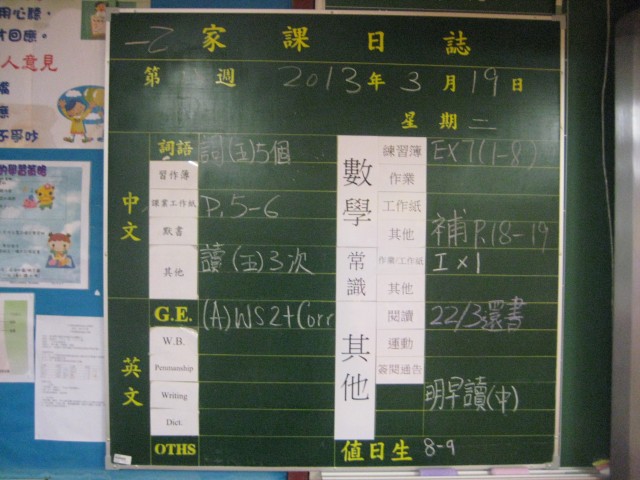 一乙 家課日誌
第 週 2013年3月19日
星期二
中文
詞語 詞(五)5個
習作簿
課業工作紙 P.5-6
默書
其他 讀(五)3次
英文
G.E. (A)WS2+Corr
W.B.
Penmanship
Writing
Dict.
OTHS
數學
練習簿 EX7(1-8)
作業
工作紙
其他 補P.18-19
常識
作業/工作紙 I×1
其他
其他
閱讀 22/3還書
運動
簽閱通告
明早讀(中)
值日生 8-9
用心聽,
才回應。
人意見